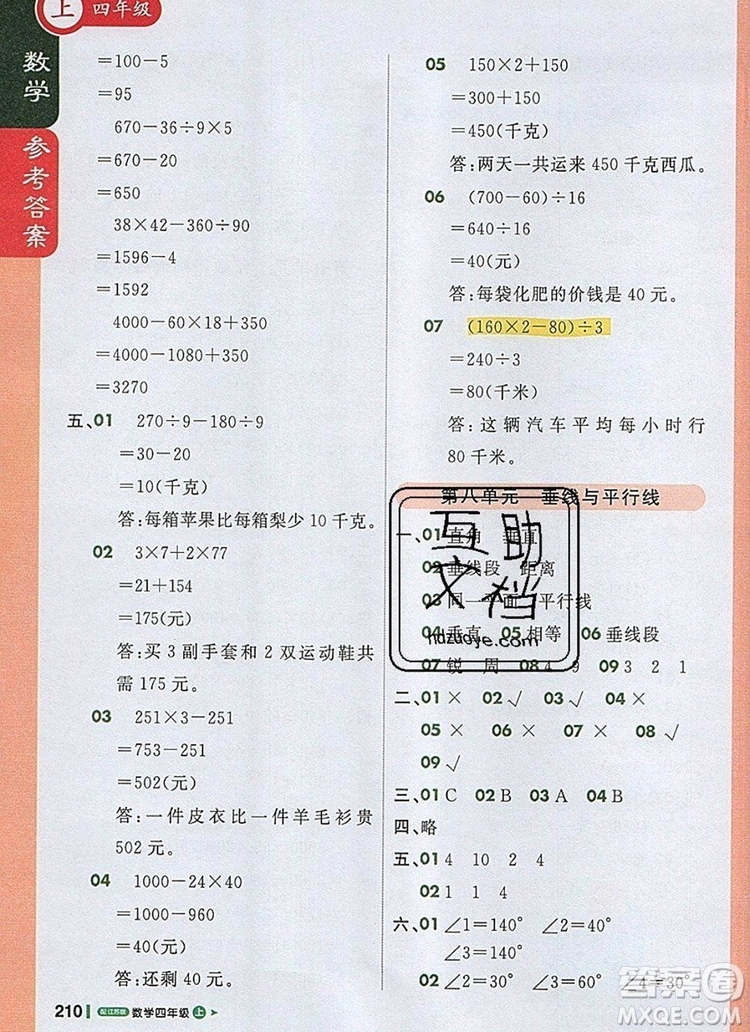 上 四年级
数学
参考答案
=100-5
=95
670-36÷9×5
=670-20
=650
38×42-360÷90
=1596-4
=1592
4000-60×18+350
=4000-1080+350
=3270
五、01 270÷9-180÷9
=30-20
=10(千克)
答:每箱苹果比每箱梨少 10 千克。
02 3×7+2×77
=21+154
=175(元)
答:买 3 副手套和 2 双运动鞋共
需 175 元。
03 251×3-251
=753-251
=502(元)
答:一件皮衣比一件羊毛衫贵
502 元。
04 1000-24×40
=1000-960
=40(元)
答:还剩 40 元。
05 150×2+150
=300+150
=450(千克)
答:两天一共运来 450 千克西瓜。
06 (700-60)÷16
=640÷16
=40(元)
答:每袋化肥的价钱是 40 元。
07 (160×2-80)÷3
=240÷3
=80(千米)
答:这辆汽车平均每小时行
80 千米。
第八单元 垂线与平行线
一、01 直角 垂直
02 垂线段 距离
03 同一平面 平行线
04 垂直 05 相等 06 垂线段
07 锐 周 08 4 9 09 3 2 1
二、01 × 02 √ 03 √ 04 ×
05 × 06 × 07 × 08 √
09 √
三、01 C 02 B 03 A 04 B
四、略
五、01 4 10 2 4
02 1 1 4
六、01 ∠1=140° ∠2=40°
∠3=140°
02 ∠2=30° ∠3=60° ∠4=30°
互助
文档
huzuoye.com
答案圈
MXQE.COM
210 配江苏版 数学四年级 上